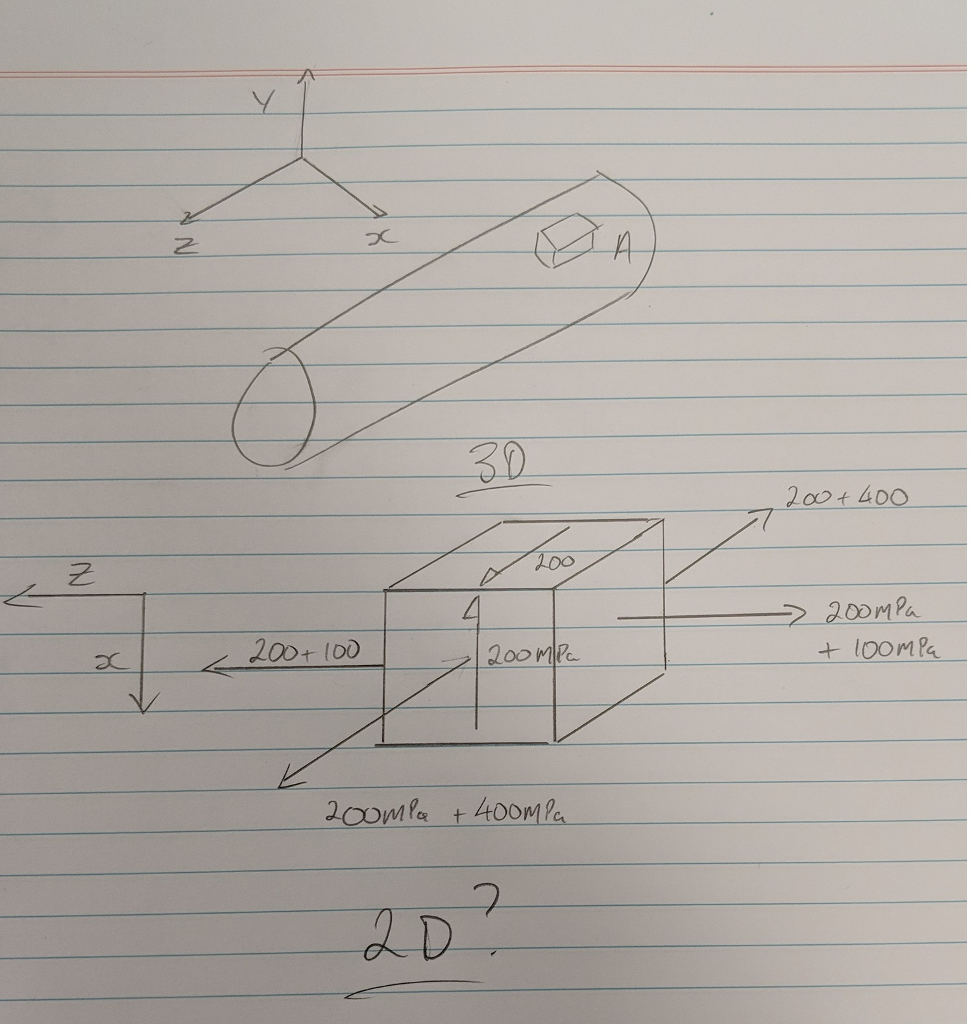 Y
Z
x
A
3D
200+400
Z
200
200mPa
+ 100mPa
x
200+100
200mPa
200mPa + 400mPa
2D?